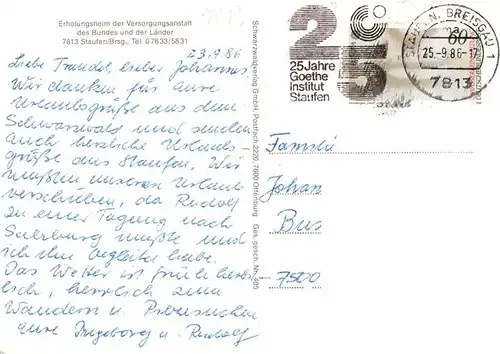 Erholungsheim der Versorgungsanstalt
des Bundes und der Länder
7813 Staufen/Brsg., Tel. 07633/5831
23.9.86
Liebe Traudel, lieber Johannes,
Wir danken für eure
Urlaubsgrüße aus dem
Schwarzwald und senden
Euch herzliche Urlaubs-
grüße aus Staufen. Wir
mußten unseren Urlaub
verschieben, da Rudolf
zu einer Tagung nach
Salzburg mußte und
ich ihn begleitet habe.
Das Wetter ist früh herbst-
lich, herrlich zum
Wandern u.
eure Ingeborg u. Rudolf
Schwarzwaldverlag GmbH, Postfach 2220, 7600 Offenburg Ges. gesch. Nr.
25
25 Jahre
Goethe
Institut
Staufen
60
STAUFEN, BREISGAU 1
25.-9.86-17
7813
Familie
Johan
Bus
7500